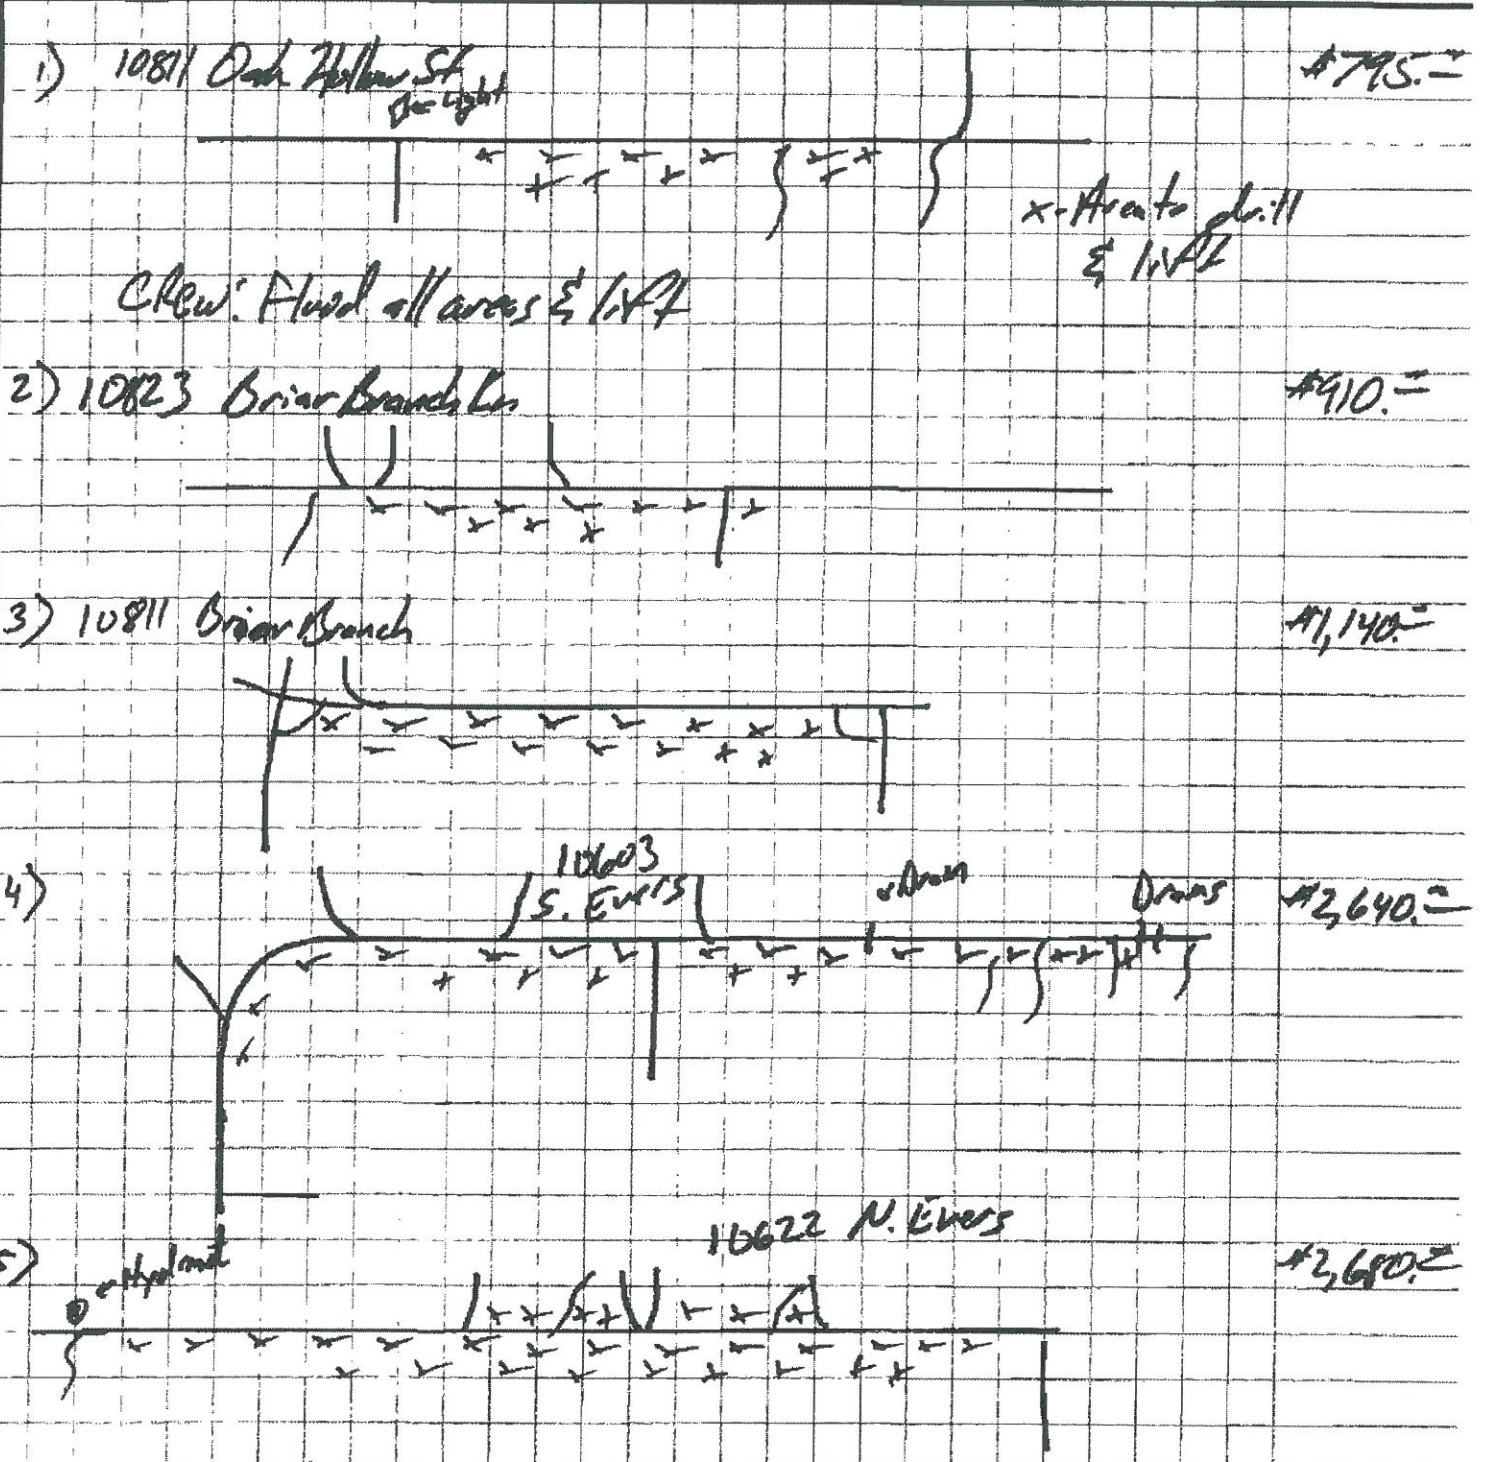 1) 10811 Oak Hollow St $795.=
← Light
x - Area to drill
& lift
Crew: Flood all areas & lift
2) 10823 Briar Branch Ln $910.=
3) 10811 Briar Branch $1,140.=
4) 10603 $2,640.=
S. Evers
←Drain
Drains
5) 10622 N. Evers
←Hydrant